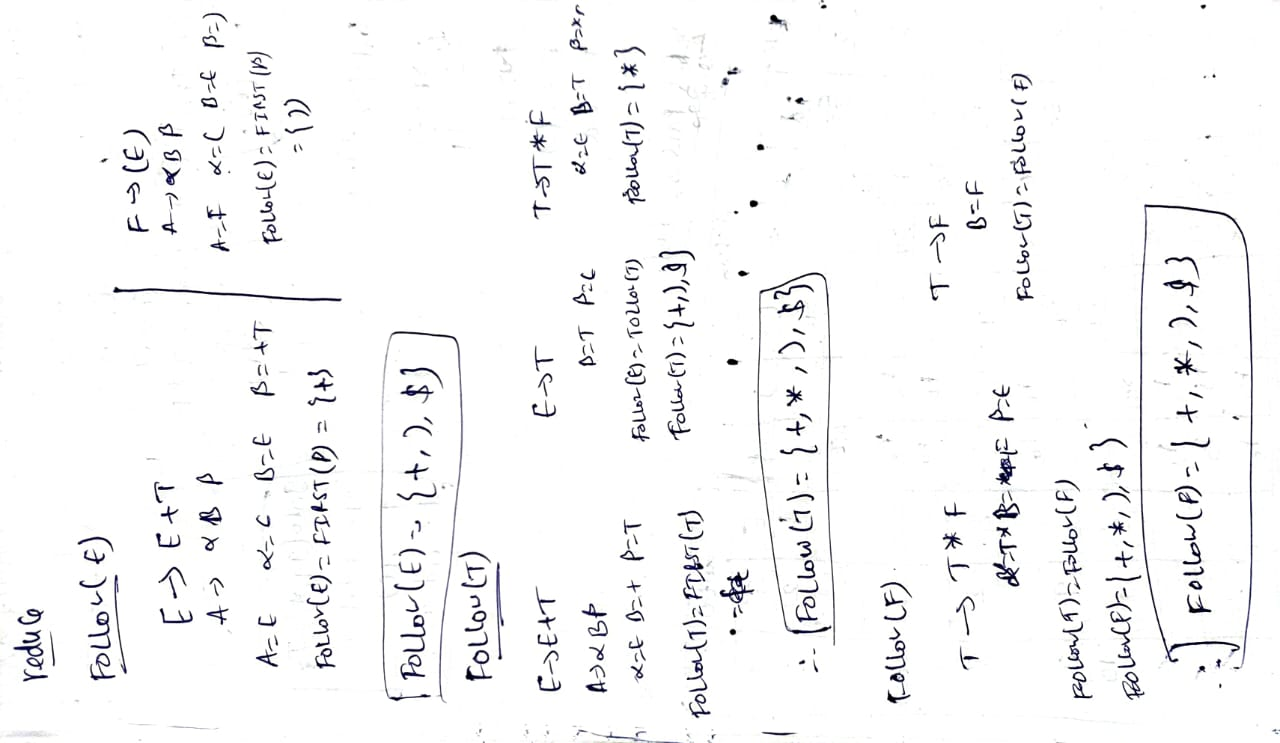 reduce
Follow(E)
E → E+T
A → α B β
A=E α=ε B=E β=+T
Follow(E)=FIRST(β) = {+}
F → (E)
A → α B β
A=F α=( B=E β=)
Follow(E)=FIRST(β)
= {)}
Follow(E) = {+, ), $}
Follow(T)
E→E+T
A→αBβ
α=E B=+ β=T
Follow(T)=FIRST(T)
E→T
B=T β=ε
Follow(E)=Follow(T)
Follow(T)={+,),$}
T→T*F
α=ε B=T β=*F
Follow(T)={*}
∴ Follow(T) = {+, *, ), $}
Follow(F)
T → T * F
β=ε
Follow(T)=Follow(F)
Follow(F)={+,*,),$}
T → F
B=F
Follow(T)=Follow(F)
∴ Follow(F) = {+, *, ), $}